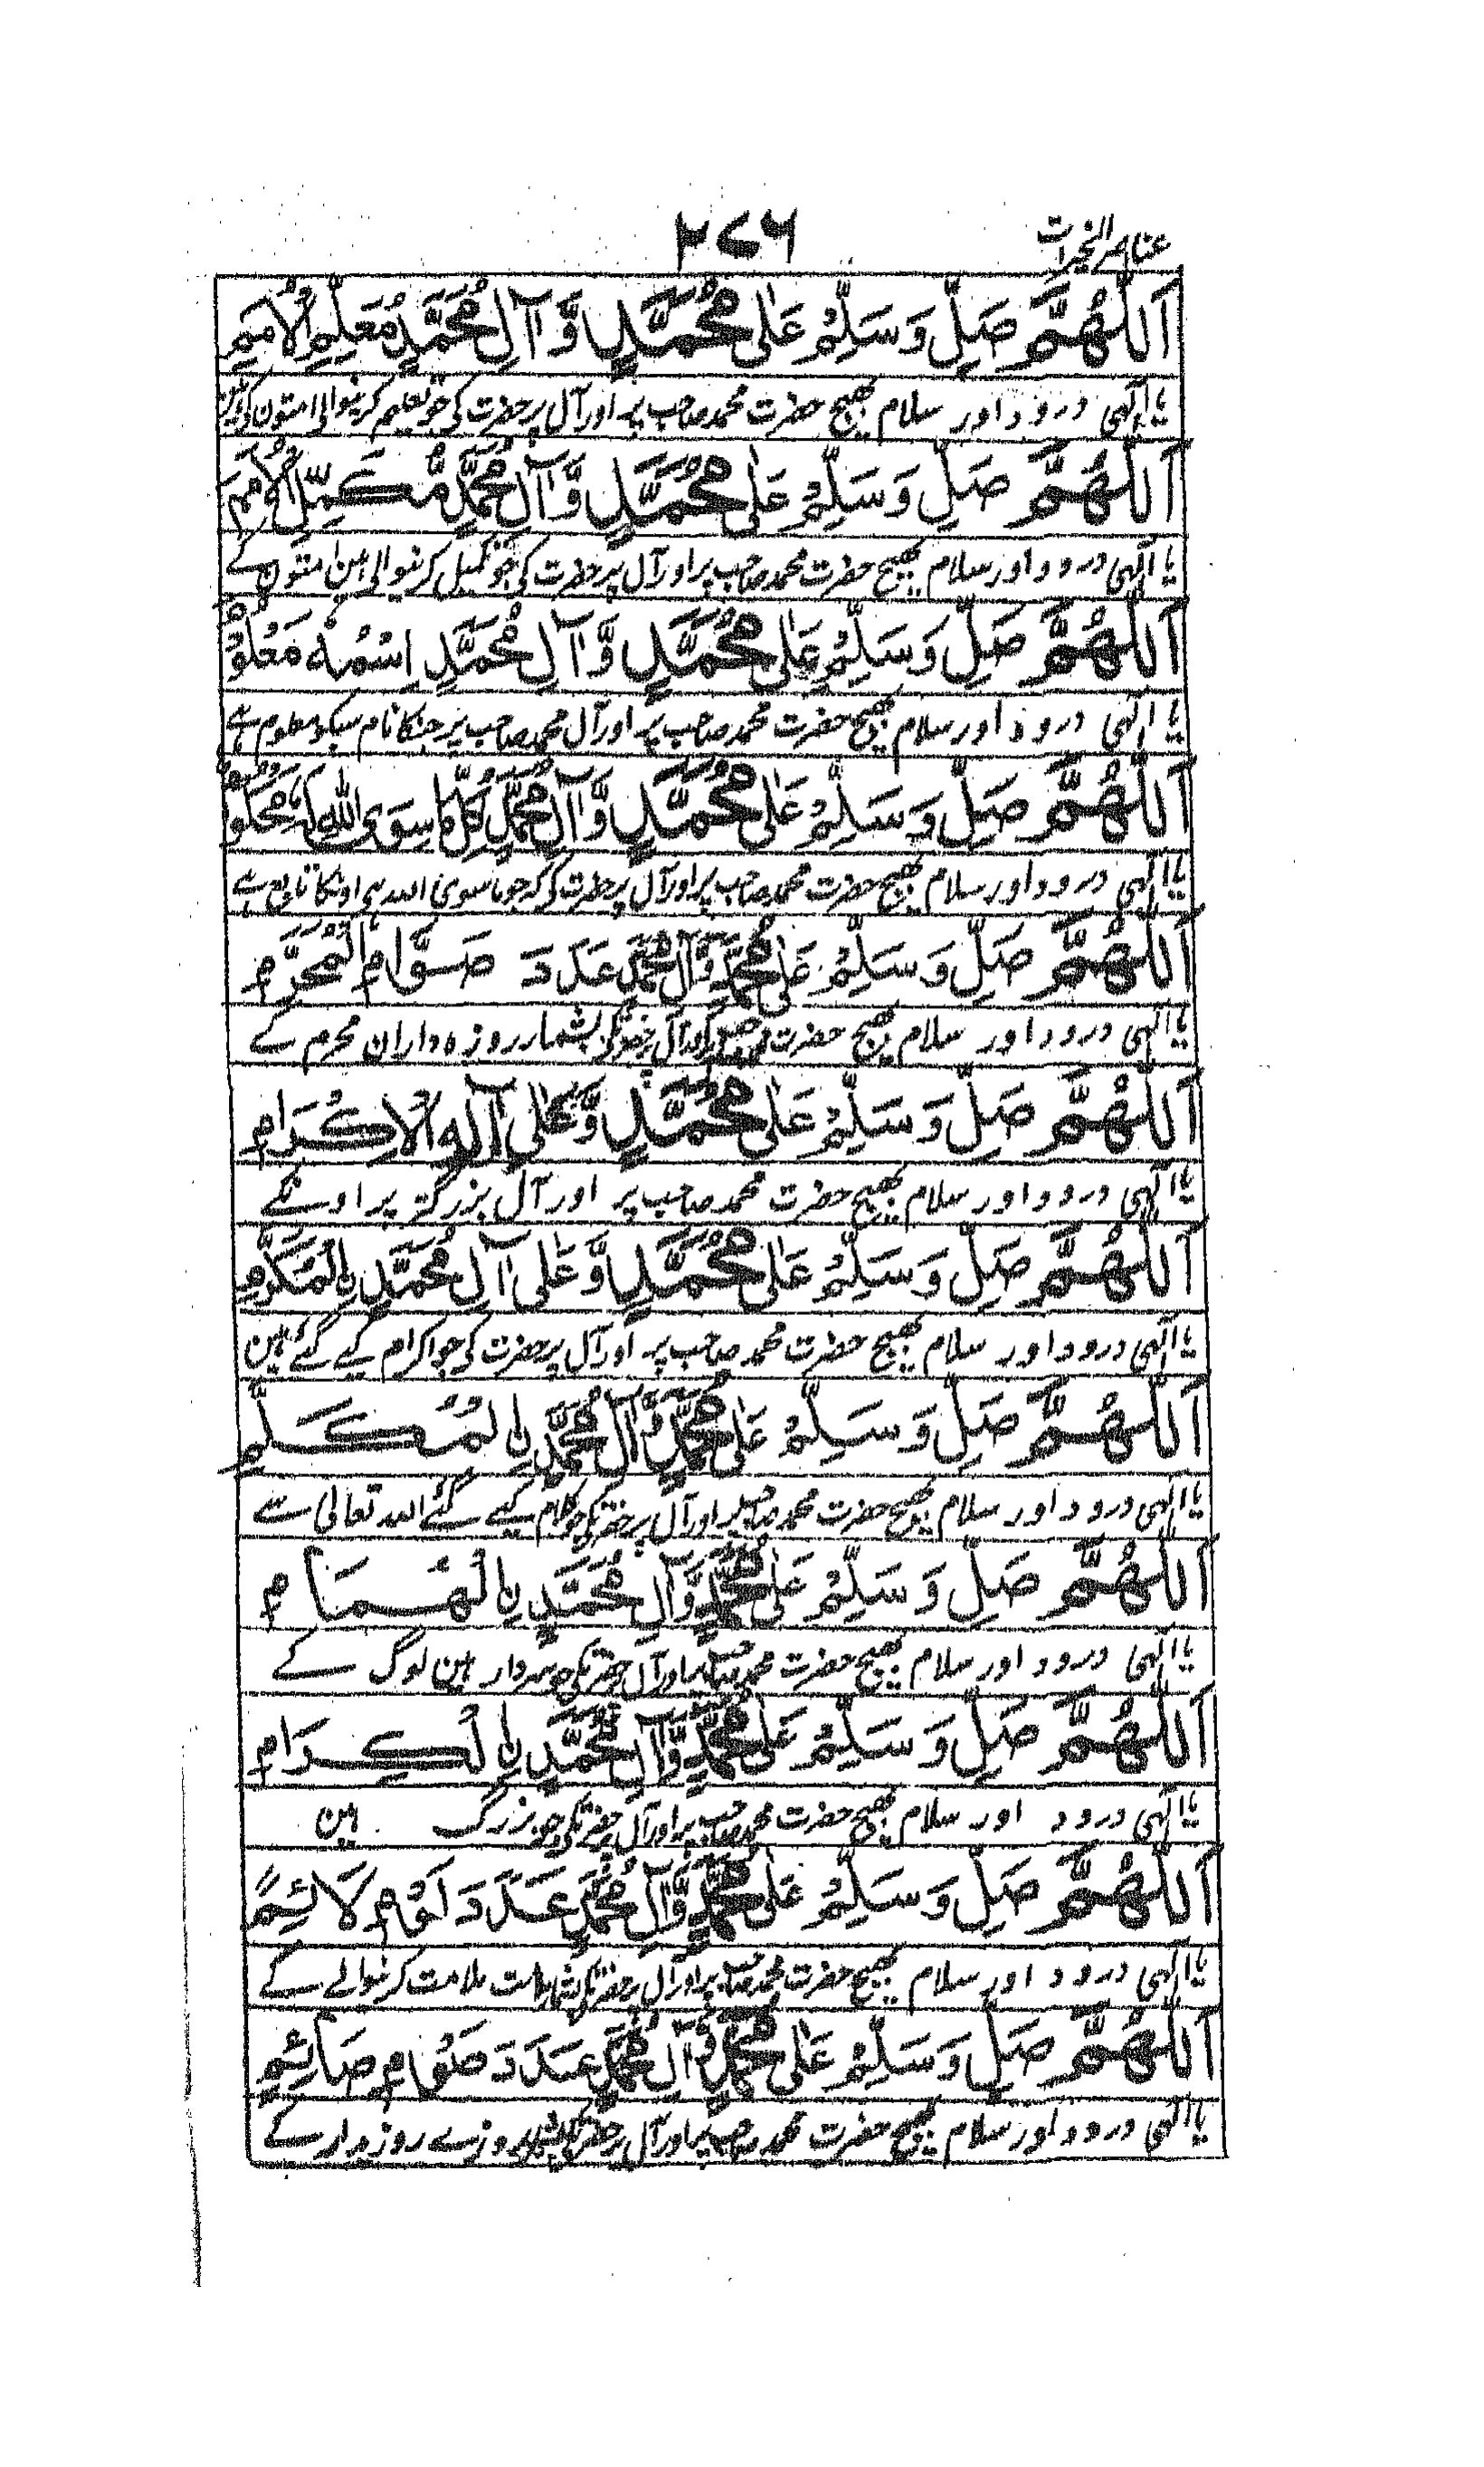 عناصر الخیرات
۲۷۶
اَللّٰهُمَّ صَلِّ وَسَلِّمْ عَلٰى مُحَمَّدٍ وَّاٰلِ مُحَمَّدٍ مُعَلِّمِ الْاُمَمِ
یا الٰہی درود اور سلام بھیج حضرت محمد صاحب پر اور آل پر حضرت کی جو تعلیم کرنیوالی امتون کی ہین
اَللّٰهُمَّ صَلِّ وَسَلِّمْ عَلٰى مُحَمَّدٍ وَّاٰلِ مُحَمَّدٍ مُّكَمِّلِ الْاُمَمِ
یا الٰہی درود اور سلام بھیج حضرت محمد صاحب پر اور آل پر حضرت کی جو تکمیل کرنیوالی ہین امتون کے
اَللّٰهُمَّ صَلِّ وَسَلِّمْ عَلٰى مُحَمَّدٍ وَّاٰلِ مُحَمَّدٍ اِسْمُهٗ مَعْلُوْمٌ
یا الٰہی درود اور سلام بھیج حضرت محمد صاحب پر اور آل محمد صاحب پر جنکا نام سبکو معلوم ہے
اَللّٰهُمَّ صَلِّ وَسَلِّمْ عَلٰى مُحَمَّدٍ وَّاٰلِ مُحَمَّدٍ كُلُّ مَا سِوَى اللّٰهِ لَهٗ مَحْكُوْمٌ
یا الٰہی درود اور سلام بھیج حضرت محمد صاحب پر اور آل پر حضرت کی کہ جو ماسوی اللہ ہی اونکا تابع ہے
اَللّٰهُمَّ صَلِّ وَسَلِّمْ عَلٰى مُحَمَّدٍ وَّاٰلِ مُحَمَّدٍ عَدَدَ صَوَّامِ الْمُحَرَّمِ
یا الٰہی درود اور سلام بھیج حضرت محمد صاحب پر اور آل پر حضرت کی بشمار روزہ داران محرم کے
اَللّٰهُمَّ صَلِّ وَسَلِّمْ عَلٰى مُحَمَّدٍ وَّعَلٰى اٰلِهِ الْاِكْرَامِ
یا الٰہی درود اور سلام بھیج حضرت محمد صاحب پر اور آل بزرگ پر اونکے
اَللّٰهُمَّ صَلِّ وَسَلِّمْ عَلٰى مُحَمَّدٍ وَّعَلٰى اٰلِ مُحَمَّدِ نِالْمُكَرَّمِ
یا الٰہی درود اور سلام بھیج حضرت محمد صاحب پر اور آل پر حضرت کی جو اکرام کیے گئے ہین
اَللّٰهُمَّ صَلِّ وَسَلِّمْ عَلٰى مُحَمَّدٍ وَّاٰلِ مُحَمَّدِ نِالْمُكَلَّمِ
یا الٰہی درود اور سلام بھیج حضرت محمد صاحب پر اور آل پر حضرت کی جو کلام کیے گئے اللہ تعالٰی سے
اَللّٰهُمَّ صَلِّ وَسَلِّمْ عَلٰى مُحَمَّدٍ وَّاٰلِ مُحَمَّدِ نِالْهُمَامِ
یا الٰہی درود اور سلام بھیج حضرت محمد صاحب پر اور آل پر حضرت کی جو سردار ہین لوگ کے
اَللّٰهُمَّ صَلِّ وَسَلِّمْ عَلٰى مُحَمَّدٍ وَّاٰلِ مُحَمَّدِ نِالْكِرَامِ
یا الٰہی درود اور سلام بھیج حضرت محمد صاحب پر اور آل پر حضرت کی جو بزرگ ہین
اَللّٰهُمَّ صَلِّ وَسَلِّمْ عَلٰى مُحَمَّدٍ وَّاٰلِ مُحَمَّدٍ عَدَدَ لَوْمِ لَائِمٍ
یا الٰہی درود اور سلام بھیج حضرت محمد صاحب پر اور آل پر حضرت کی ملامت کرنیوالے کے
اَللّٰهُمَّ صَلِّ وَسَلِّمْ عَلٰى مُحَمَّدٍ وَّاٰلِ مُحَمَّدٍ عَدَدَ صَوْمِ صَائِمٍ
یا الٰہی درود اور سلام بھیج حضرت محمد صاحب پر اور آل پر حضرت کی بشمار روزے روزہ دار کے